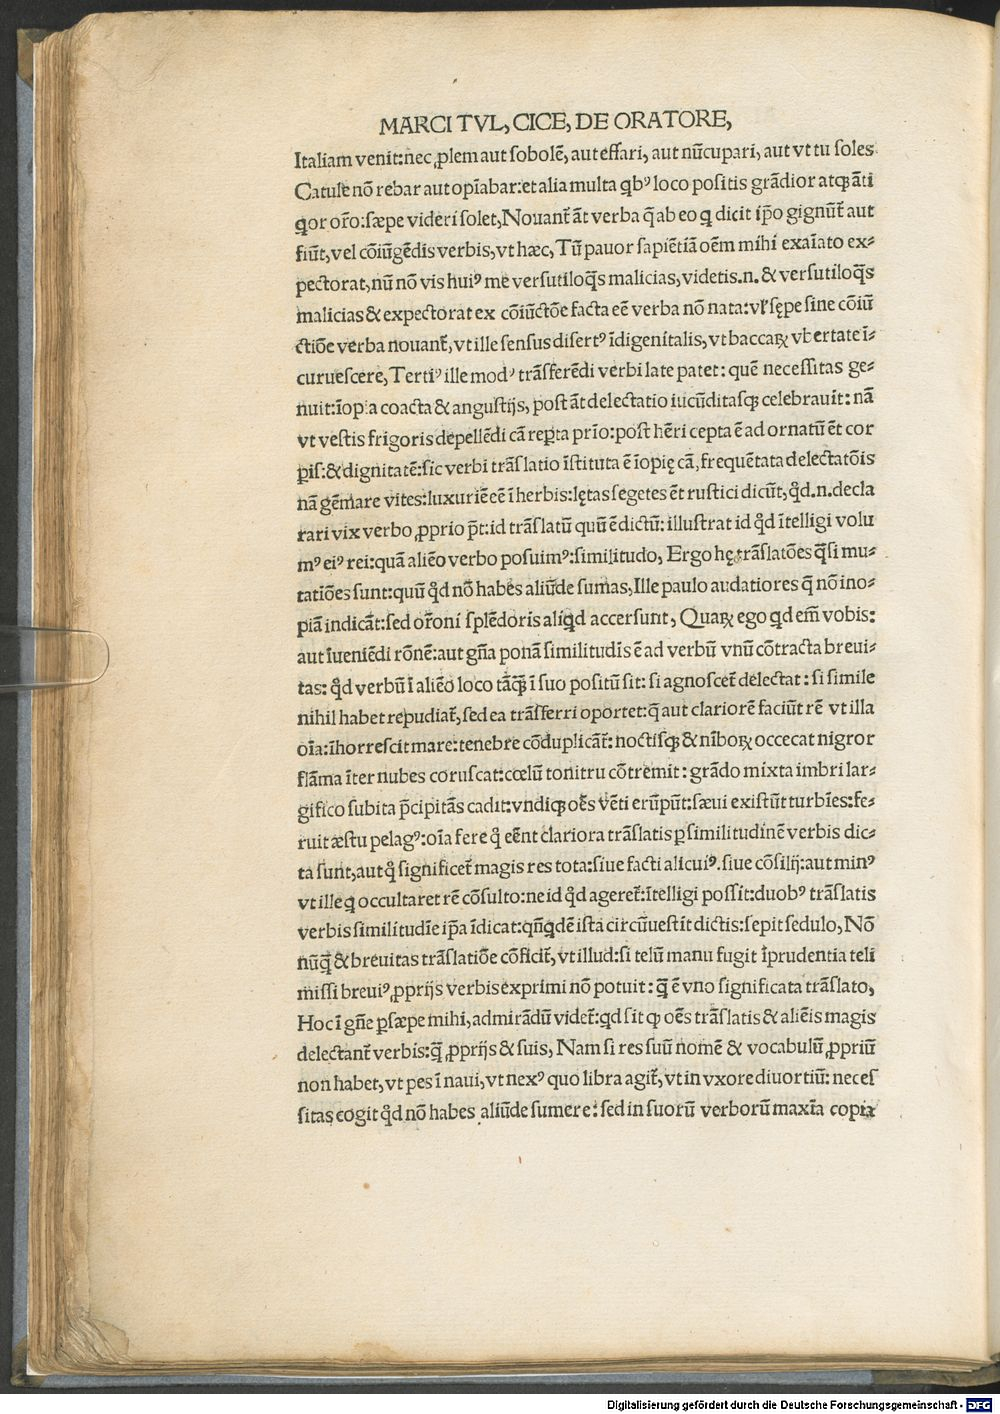 MARCI TVL, CICE, DE ORATORE,
Italiam venit:nec ꝓlem aut sobolē, aut effari, aut nūcupari, aut vt tu soles
Catule nō rebar aut opiābar:et alia multa qbꝰ loco positis grādior atqꝫ āti
qor or̄o:sæpe videri solet, Nouant̄ āt verba q̄ ab eo q dicit ip̄o gignūt̄ aut
fiūt, vel cōiūgēdis verbis, vt hæc, Tū pavor sapiētiā oēm mihi exaīato ex⸗
pectorat, nū nō vis huiꝰ me versutiloq̄s malicias, videtis.n. & versutiloq̄s
malicias & expectorat ex cōiūctōe facta eē verba nō nata:vl̛ sępe sine cōiū
ctiōe verba nouant̄, vt ille sensus disertꝰ īdigenitalis, vt baccaꝝ vbertate ī⸗
curuescere, Tertiꝰ ille modꝰ trāsferēdi verbi late patet: quē necessitas ge⸗
nuit:īopia coacta & angustijs, post āt delectatio iucūditasqꝫ celebrauit: nā
vt vestis frigoris depellēdi cā reꝑta prīo:post hēri cepta ē ad ornatū ēt cor
ꝑis:& dignitatē:sic verbi trāslatio īstituta ē īopię cā, frequētata delectatōis
nā gēmare vites:luxuriē eē ī herbis:lętas segetes ēt rustici dicūt, qd̄.n. decla
rari vix verbo ꝓprio pt̄:id trāslatū quū ē dictū: illustrat id qd̄ ītelligi volu
mꝰ eiꝰ rei:quā aliēo verbo posuimꝰ:similitudo, Ergo hę trāslatōes q̄si mu⸗
tatiōes sunt:quū qd̄ nō habēs aliūde sumas, Ille paulo audatiores q̄ nō ino⸗
piā indicāt:sed or̄oni splēdoris aliqd accersunt, Quaꝝ ego qd em̄ vobis:
aut īueniēdi rōnē:aut gn̄a ponā similitudīs ē ad verbū vnū cōtracta breui⸗
tas: qd̄ verbū ī aliēo loco tāqꝫ ī suo positū sit: si agnoscet̄ delectat: si simile
nihil habet repudiat̄, sed ea trāsferri oportet:q̄ aut clariorē faciūt rē vt illa
oīa:īhorrescit mare:tenebre cōduplicāt̄: noctisqꝫ & nīboꝝ occecat nigror
flāma īter nubes coruscat:cœlū tonitru cōtremit: grādo mixta imbri lar⸗
gifico subita p̄cipitās cadit:vndiqꝫ oēs vēti erūpūt:sæui existūt turbīes:fe⸗
ruit æstu pelagꝰ:oīa fere q̄ eēnt clariora trāslatis ꝑ similitudinē verbis dic⸗
ta sunt, aut q̄ significet̄ magis res tota:siue facti alicuiꝰ.siue cōsilij:aut minꝰ
vt ille q occultaret rē cōsulto:ne id qd̄ ageret̄:ītelligi possit:duobꝰ trāslatis
verbis similitudīe ip̄a īdicat:qn̄qdē ista circūuestīt dictis:sepit sedulo, Nō
nūq̄ & breuitas trāslatiōe cōficit̄, vt illud:si telū manu fugit īprudentia teli
missi breuiꝰ ꝓprijs verbis exprimi nō potuit: q̄ ē vno significata trāslato,
Hoc ī gn̄e ꝑsæpe mihi, admirādū videt̄:qd sit qꝫ oēs trāslatis & aliēis magis
delectant̄ verbis:q̄ ꝓprijs & suis, Nam si res suū nomē & vocabulū ꝓpriū
non habet, vt pes ī naui, vt nexꝰ quo libra agit̄, vt in vxore diuortiū: neces
sitas cogit qd̄ nō habes aliūde sumere: sed in suorū verborū maxīa copia
Digitalisierung gefördert durch die Deutsche Forschungsgemeinschaft - DFG